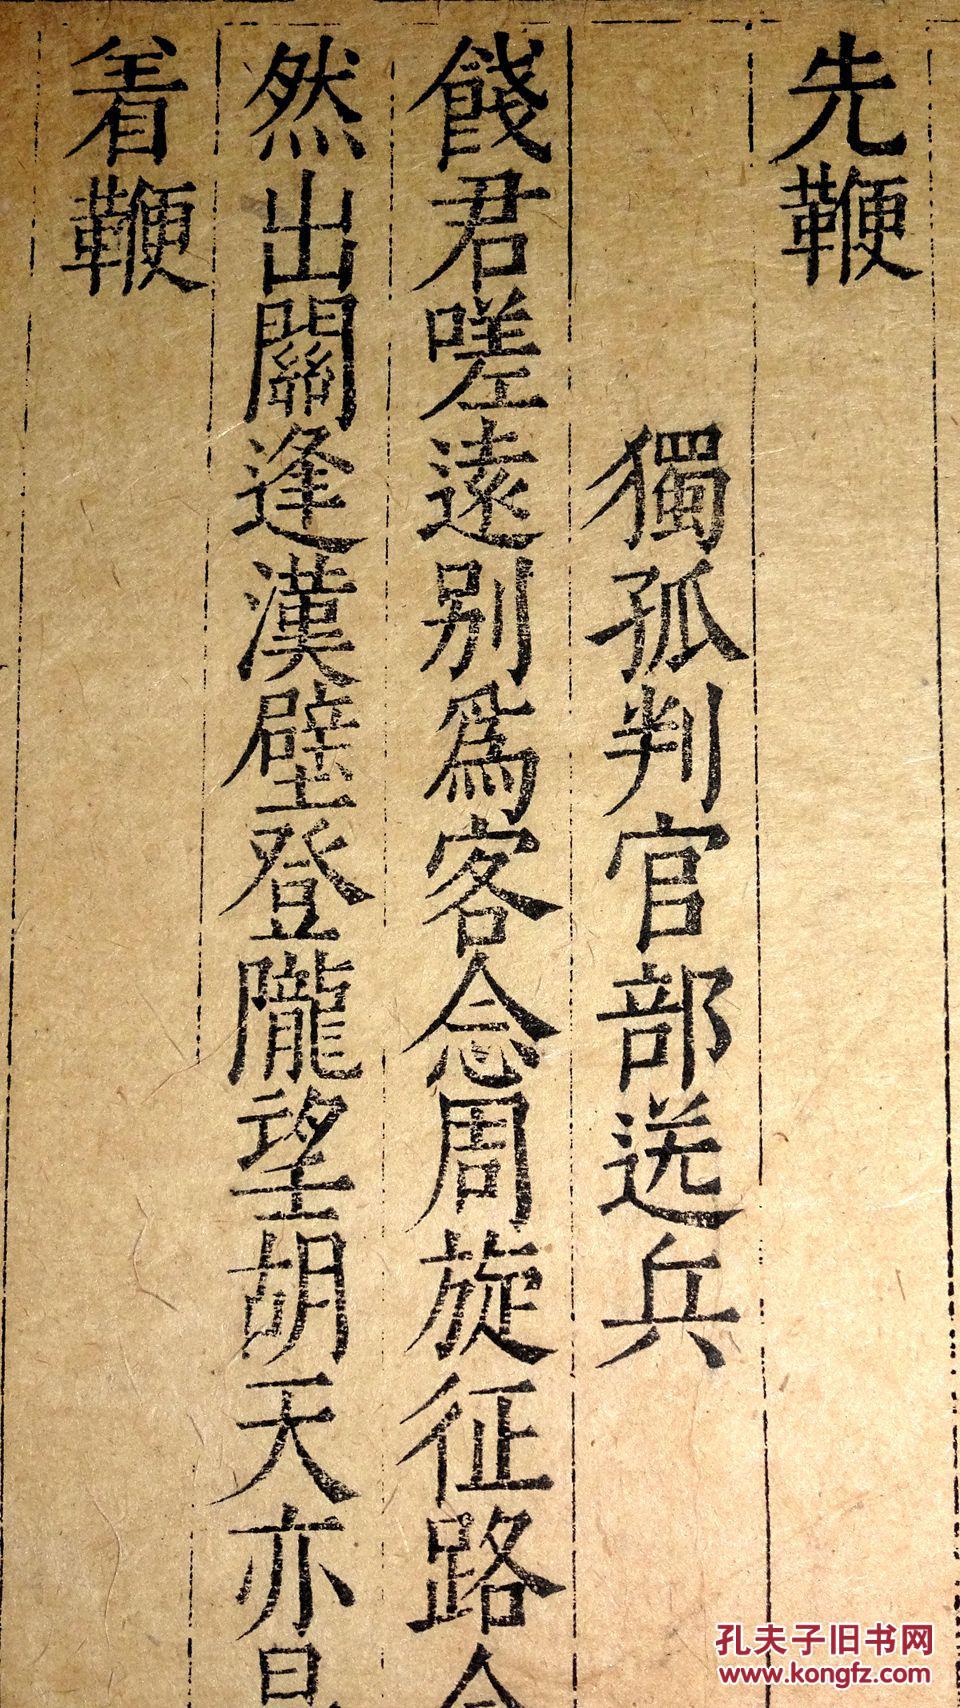 先鞭
獨孤判官部送兵
餞君嗟遠别爲客念周旋征路
然出關逢漢壁登隴望胡天亦
着鞭
孔夫子旧书网
www.kongfz.com